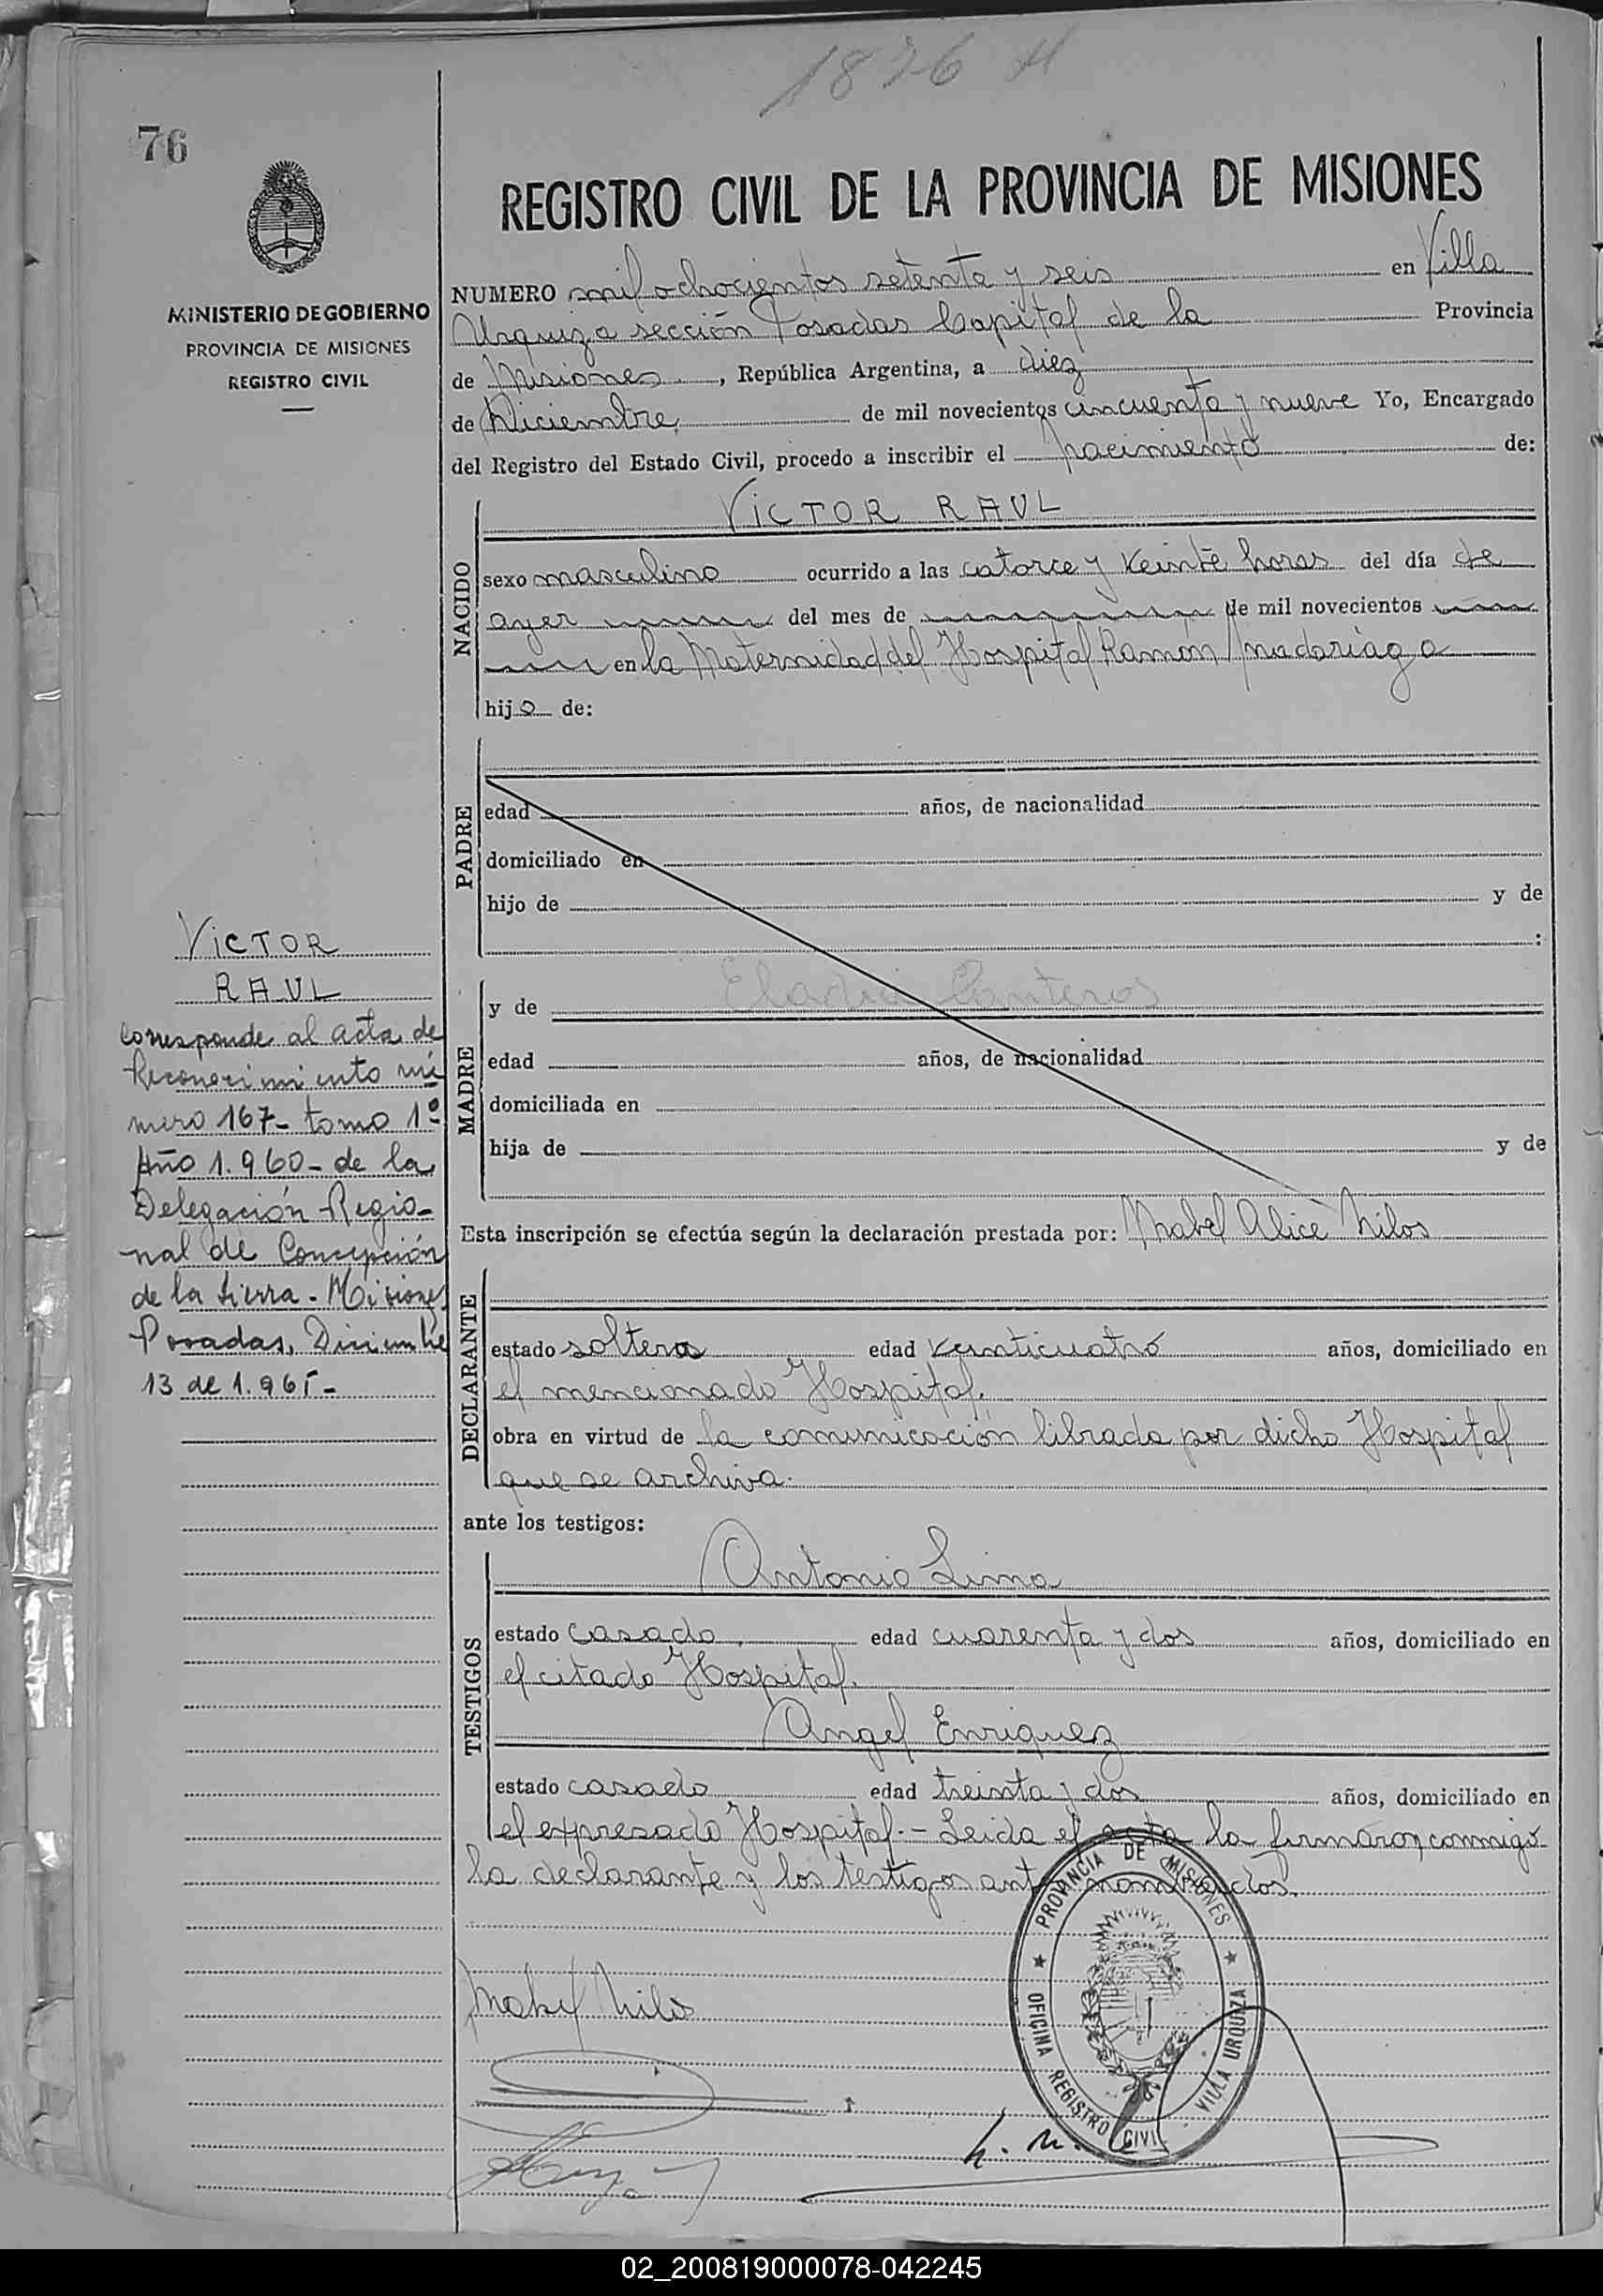 1876 H
76
MINISTERIO DE GOBIERNO
PROVINCIA DE MISIONES
REGISTRO CIVIL
REGISTRO CIVIL DE LA PROVINCIA DE MISIONES
NUMERO mil ochocientos setenta y seis en Villa
Urquiza sección Posadas Capital de la Provincia
de Misiones, República Argentina, a diez
de Diciembre de mil novecientos cincuenta y nueve Yo, Encargado
del Registro del Estado Civil, procedo a inscribir el nacimiento de:
NACIDO
VICTOR RAUL
sexo masculino ocurrido a las catorce y veinte horas del día de
ayer del mes de de mil novecientos
en la Maternidad del Hospital Ramón Madariaga
hijo de:
PADRE
edad años, de nacionalidad
domiciliado en
hijo de y de
:
MADRE
y de Eladia Canteros
edad años, de nacionalidad
domiciliada en
hija de y de
Esta inscripción se efectúa según la declaración prestada por: Mabel Alice Milos
DECLARANTE
estado soltera edad veinticuatro años, domiciliado en
el mencionado Hospital.
obra en virtud de la comunicación librada por dicho Hospital
que se archiva.
ante los testigos:
TESTIGOS
Antonio Lima
estado casado edad cuarenta y dos años, domiciliado en
el citado Hospital.
Angel Enriquez
estado casado edad treinta y dos años, domiciliado en
el expresado Hospital.- Leida el acta la firmaron conmigo
la declarante y los testigos ante nombrados.
VICTOR
RAUL
Corresponde al acta de
Reconocimiento nú
mero 167- tomo 1º
Año 1.960- de la
Delegación Regio-
nal de Concepción
de la Sierra - Misiones
Posadas, Diciembre
13 de 1.965-
Mabel Milos
PROVINCIA DE MISIONES
OFICINA REGISTRO CIVIL VILLA URQUIZA
02_200819000078-042245